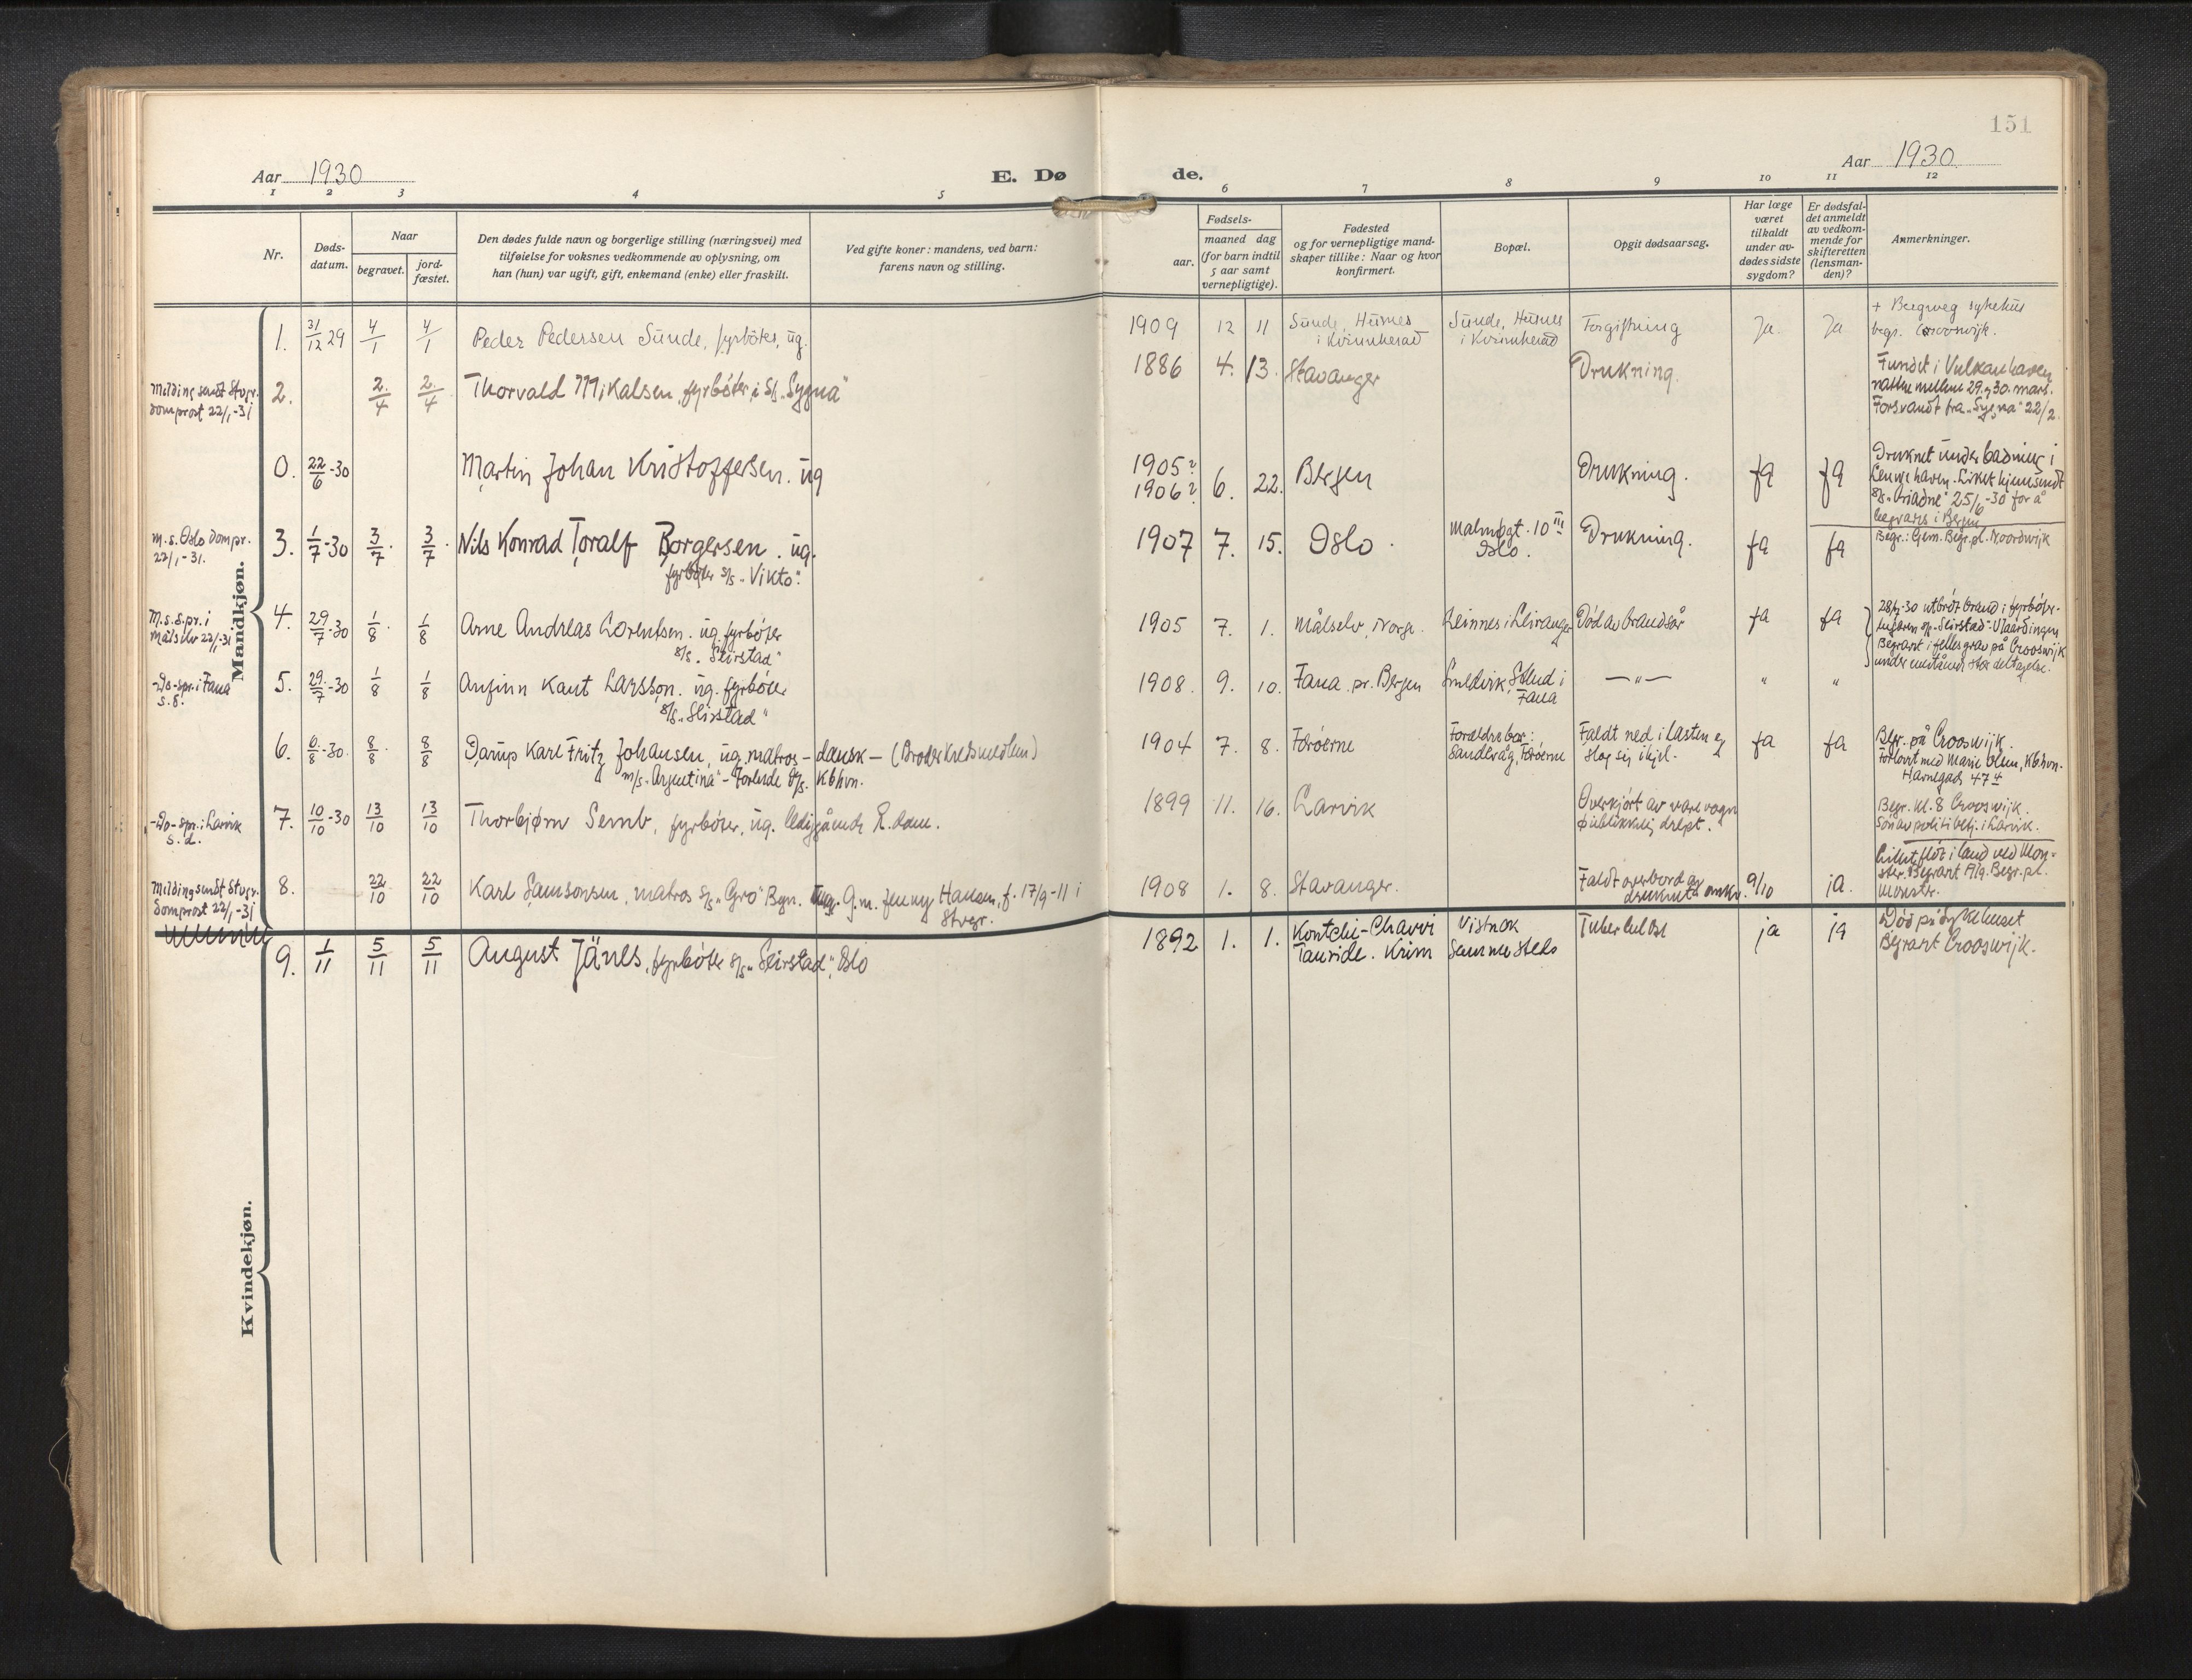 151
Aar 1930
E. Dø
de.
Aar 1930
1 2 3 4 5 6 7 8 9 10 11 12
Nr.
Døds-
datum.
Naar
begravet.
jord-
fæstet.
Den dødes fulde navn og borgerlige stilling (næringsvei) med
tilføielse for voksnes vedkommende av oplysning, om
han (hun) var ugift, gift, enkemand (enke) eller fraskilt.
Ved gifte koner: mandens, ved barn:
farens navn og stilling.
Fødsels-
aar.
maaned dag
(for barn indtil
5 aar samt
vernepligtige).
Fødested
og for vernepligtige mand-
skaper tillike: Naar og hvor
konfirmert.
Bopæl.
Opgit dødsaarsag.
Har læge
været
tilkaldt
under av-
dødes sidste
sygdom?
Er dødsfal-
det anmeldt
av vedkom-
mende for
skifteretten
(lensman-
den)?
Anmerkninger.
Mandkjøn.
1. 31/12 29 4/1 4/1 Peder Pedersen Sunde, fyrbøter, ug.
1909 12 11 Sunde, Husnes
i Kvinnherad
Sunde, Husnes
i Kvinnherad
Forgiftning Ja. Ja
+ Bergweg sykehus
begr. Crooswijk.
Melding sendt Stvgr.
domprost 22/1-31
2. 2./4 2./4 Thorvald Mikalsen, fyrbøter i S/S „Sygna"
1886 4. 13. Stavanger Drukning.
Fundet i Vulkanhaven
natten mellem 29. og 30. mars.
Forsvandt fra „Sygna" 22/2.
0. 22/6-30 Martin Johan Kristoffersen. ug
1905?
1906? 6. 22. Bergen Drukning. ja ja
Druknet under badning i
Leuvehaven. Liket hjemsendt
s/s „Ariadne" 25/6-30 for å
begraves i Bergen
m.s. Oslo dompr.
22/1-31.
3. 1/7-30 3/7. 3/7. Nils Konrad Toralf Borgersen. ug.
fyrbøter s/s „Vikto".
1907 7. 15. Oslo. Malmøgt. 10 III
Oslo.
Drukning. ja ja
Begr.: Gem. Begr.pl. Noordwijk
M.s. s.pr. i
Målselv 22/1-31
4. 29/7-30 1/8. 1/8 Arne Andreas Lorentsen. ug. fyrbøter
s/s „Seirstad"
1905 7. 1. Målselv, Norge. Leinnes i Leiranger Død av brandsår ja ja
28/7-30 utbrøt brand i fyrbøter-
lugaren s/s „Seirstad" Vlaardingen
Begravet i fellesgrav på Crooswijk
under enestående stor deltagelse.
-Do- spr. i Fana
s.d.
5. 29./7-30 1/8 1/8 Anfinn Kaut Larsson. ug. fyrbøter
s/s „Seirstad"
1908. 9. 10. Fana pr. Bergen Smedvik, Stend i
Fana
—„— „ „
6. 6./8-30. 8/8. 8/8 Darup Karl Fritz Johansen, ug. matros – dansk – (Broderkredsmedlem)
m/s „Argentina" – Forende D/S. Kbhvn.
1904 7. 8. Færøerne Forældre bor:
Sandevåg, Færøerne
Faldt ned i lasten og
slog sig ihjel. ja ja
Begr. på Crooswijk.
Forlovet med Marie Olsen, Kbhvn.
Havnegade 47 4
-Do- spr. i Larvik
s.d.
7. 10/10-30 13/10 13/10 Thorbjørn Semb, fyrbøter, ug. ledigående R.dam.
1899 11. 16. Larvik Overkjørt av varevogn
øiblikkelig drept.
Begr. kl. 8 Crooswijk.
Søn av politibetj. i Larvik.
Melding sendt Stvgr.
Domprost 22/1-31
8. 22/10 22/10 Karl Samsonsen, matros s/s „Gro" Bgn. G.m. Jenny Hansen, f. 17/9-11 i
Stvgr.
1908 1. 8. Stavanger. Faldt overbord og
druknet omkr. 9/10 ja.
Liket fløt i land ved Mon-
ster. Begravet Alg. Begr.pl.
Monster.
9. 1/11 5/11 5/11 August Jänes, fyrbøter s/s „Seirstad", Oslo
1892 1. 1. Kontchi-Chavvi
Tauride. Krim
Vistnok
samme sted
Tuberkulose ja ja
Død på sykehuset
Begravet Crooswijk.
Kvindekjøn.